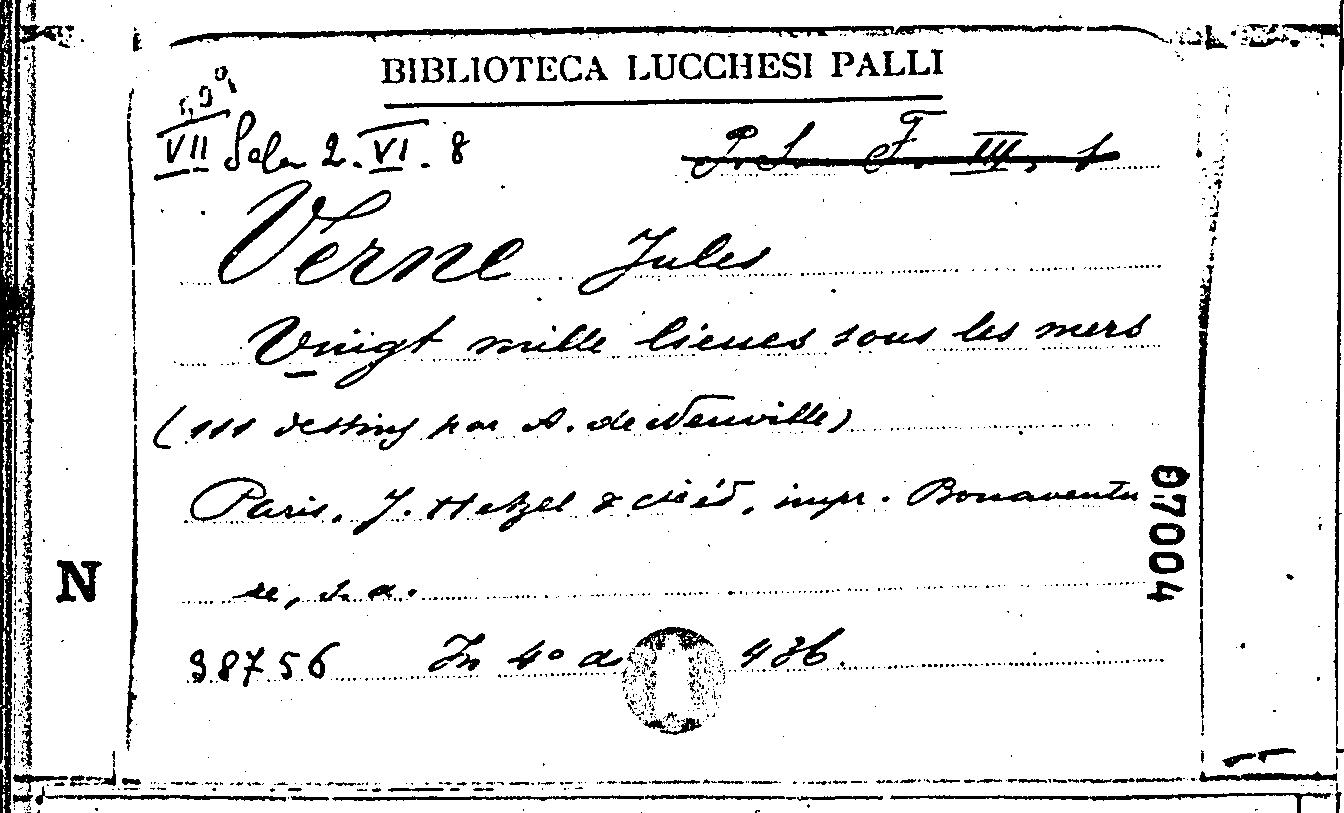 BIBLIOTECA LUCCHESI PALLI
VII Sala 2. VI. 8
P. S. F. III, 1
Verne Jules
Vingt mille lieues sous les mers
(111 dessins par A. de Neuville)
Paris, J. Hetzel & Cie éd., impr. Bonaventu
re, s. a.
07004
N
98756 In 4º a 436.